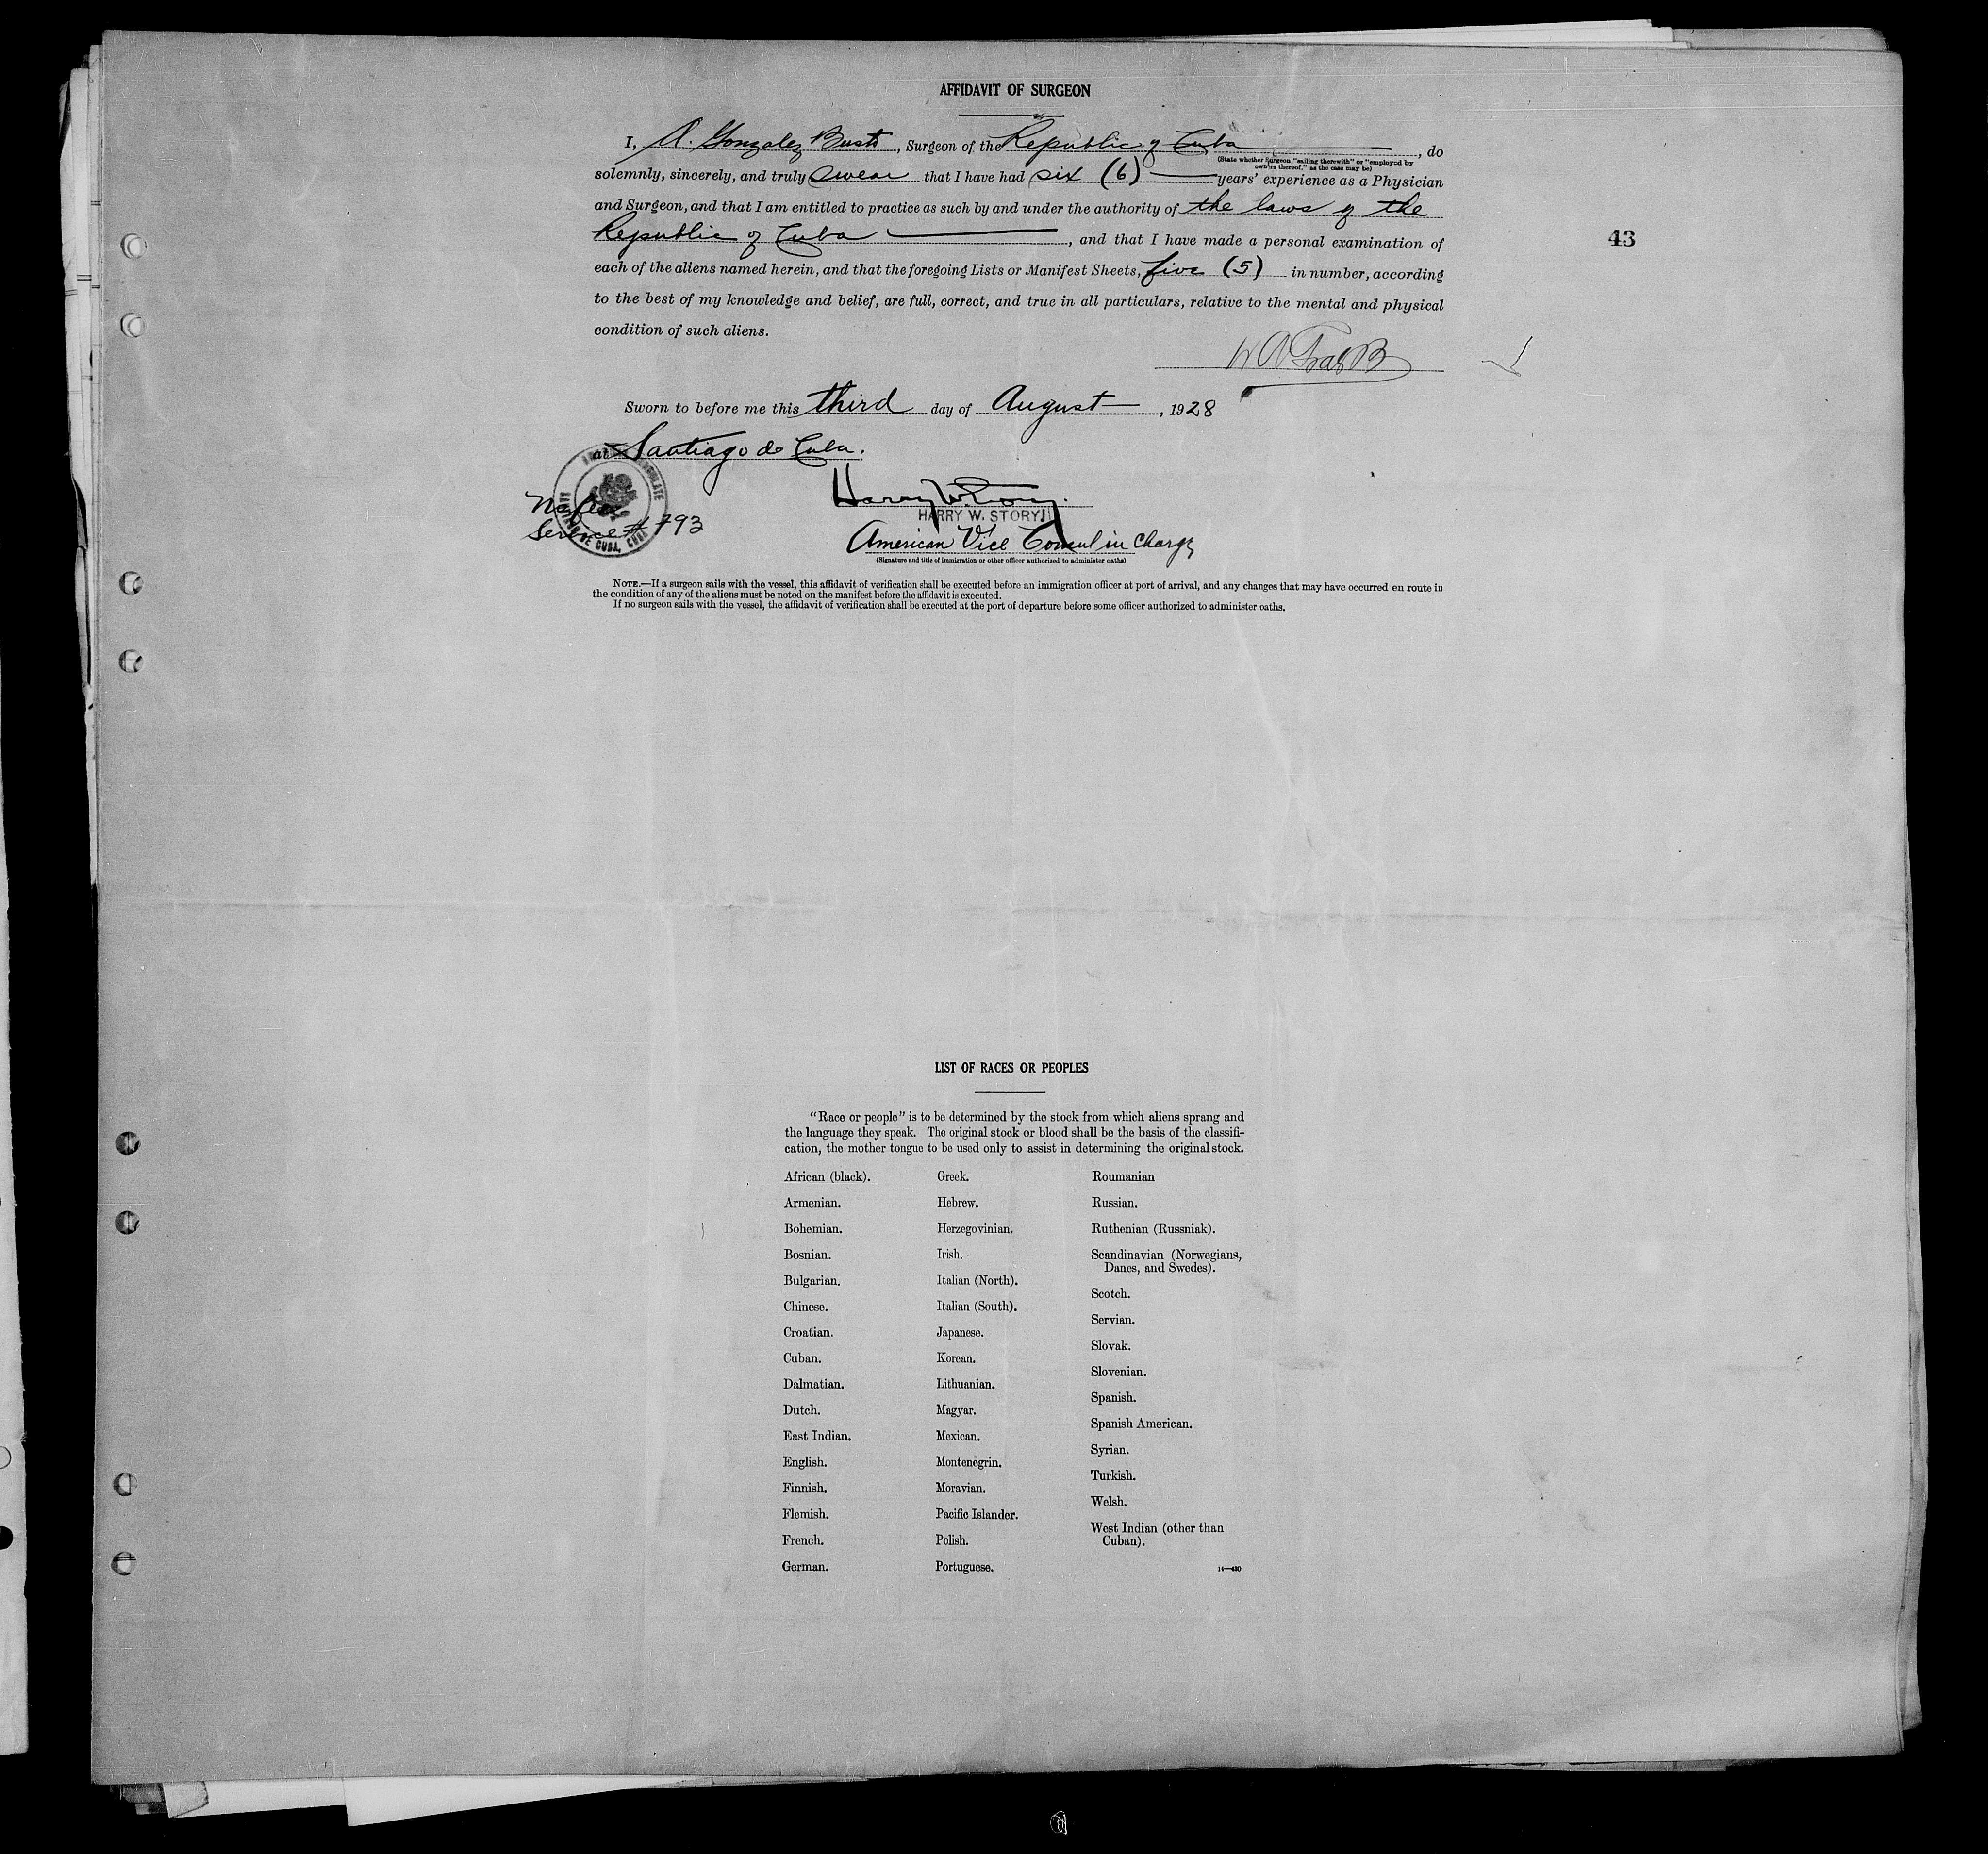 AFFIDAVIT OF SURGEON
I, A. Gonzalez Busto, Surgeon of the Republic of Cuba, do
(State whether Surgeon "sailing therewith" or "employed by
owners thereof," as the case may be)
solemnly, sincerely, and truly swear that I have had six (6) years' experience as a Physician
and Surgeon, and that I am entitled to practice as such by and under the authority of the laws of the
Republic of Cuba, and that I have made a personal examination of
43
each of the aliens named herein, and that the foregoing Lists or Manifest Sheets, five (5) in number, according
to the best of my knowledge and belief, are full, correct, and true in all particulars, relative to the mental and physical
condition of such aliens.
Sworn to before me this third day of August, 1928
at Santiago de Cuba.
No fee
Service # 793
SANTIAGO DE CUBA, CUBA
Harry W. Story
HARRY W. STORY
American Vice Consul in Charge
(Signature and title of immigration or other officer authorized to administer oaths)
NOTE.—If a surgeon sails with the vessel, this affidavit of verification shall be executed before an immigration officer at port of arrival, and any changes that may have occurred en route in
the condition of any of the aliens must be noted on the manifest before the affidavit is executed.
If no surgeon sails with the vessel, the affidavit of verification shall be executed at the port of departure before some officer authorized to administer oaths.
LIST OF RACES OR PEOPLES
"Race or people" is to be determined by the stock from which aliens sprang and
the language they speak. The original stock or blood shall be the basis of the classifi-
cation, the mother tongue to be used only to assist in determining the original stock.
African (black).
Armenian.
Bohemian.
Bosnian.
Bulgarian.
Chinese.
Croatian.
Cuban.
Dalmatian.
Dutch.
East Indian.
English.
Finnish.
Flemish.
French.
German.
Greek.
Hebrew.
Herzegovinian.
Irish.
Italian (North).
Italian (South).
Japanese.
Korean.
Lithuanian.
Magyar.
Mexican.
Montenegrin.
Moravian.
Pacific Islander.
Polish.
Portuguese.
Roumanian
Russian.
Ruthenian (Russniak).
Scandinavian (Norwegians,
Danes, and Swedes).
Scotch.
Servian.
Slovak.
Slovenian.
Spanish.
Spanish American.
Syrian.
Turkish.
Welsh.
West Indian (other than
Cuban).
14—430